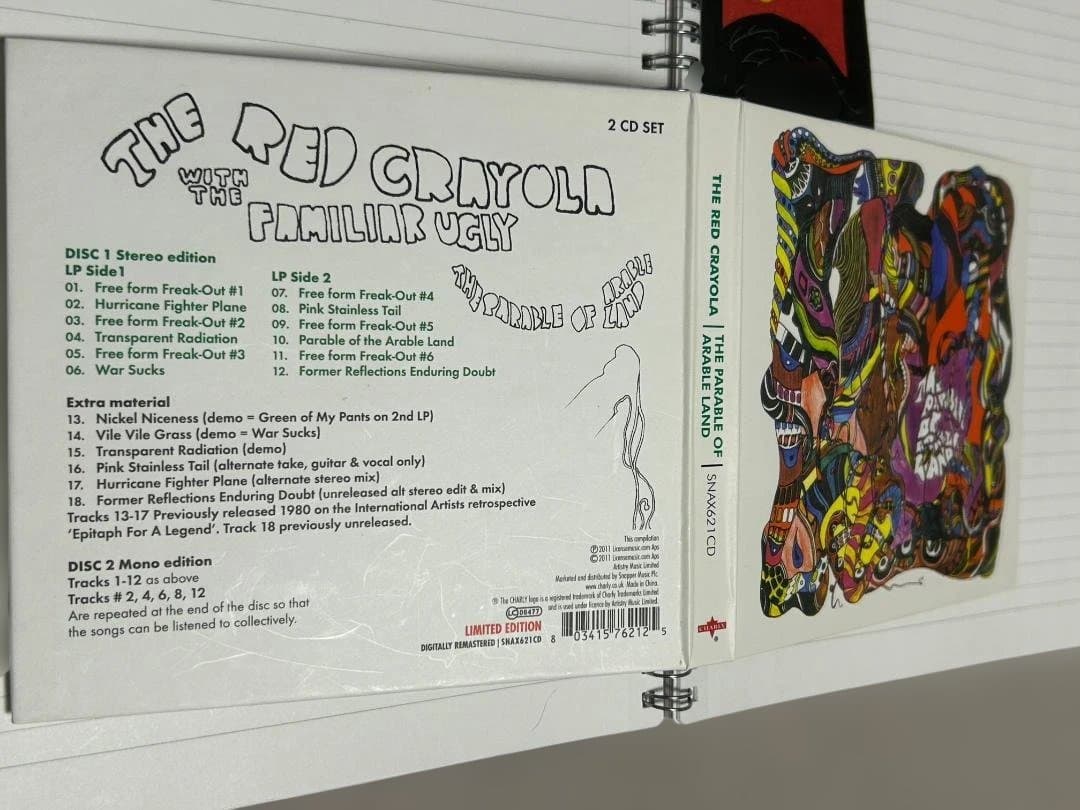 THE RED CRAYOLA
WITH THE
FAMILIAR UGLY
2 CD SET
THE PARABLE OF ARABLE LAND
DISC 1 Stereo edition
LP Side1
01. Free form Freak-Out #1
02. Hurricane Fighter Plane
03. Free form Freak-Out #2
04. Transparent Radiation
05. Free form Freak-Out #3
06. War Sucks
LP Side 2
07. Free form Freak-Out #4
08. Pink Stainless Tail
09. Free form Freak-Out #5
10. Parable of the Arable Land
11. Free form Freak-Out #6
12. Former Reflections Enduring Doubt
Extra material
13. Nickel Niceness (demo = Green of My Pants on 2nd LP)
14. Vile Vile Grass (demo = War Sucks)
15. Transparent Radiation (demo)
16. Pink Stainless Tail (alternate take, guitar & vocal only)
17. Hurricane Fighter Plane (alternate stereo mix)
18. Former Reflections Enduring Doubt (unreleased alt stereo edit & mix)
Tracks 13-17 Previously released 1980 on the International Artists retrospective
‘Epitaph For A Legend’. Track 18 previously unreleased.
DISC 2 Mono edition
Tracks 1-12 as above
Tracks # 2, 4, 6, 8, 12
Are repeated at the end of the disc so that
the songs can be listened to collectively.
This compilation
℗ 2011 Licensemusic.com Aps
© 2011 Licensemusic.com Aps
Artistry Music Limited
Marketed and distributed by Snapper Music Plc.
www.charly.co.uk Made in China.
® The CHARLY logo is a registered trademark of Charly Trademarks Limited
and is used under licence by Artistry Music Limited.
LC 08477
LIMITED EDITION
DIGITALLY REMASTERED | SNAX621CD
8 03415 76212 5
THE RED CRAYOLA | THE PARABLE OF ARABLE LAND | SNAX621CD
CHARLY
®
THE PARABLE OF ARABLE LAND